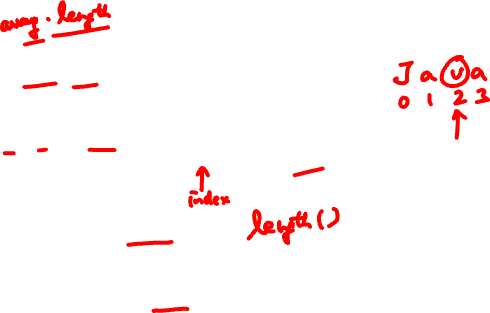 array.length
Java
0 1 2 3
index
length()